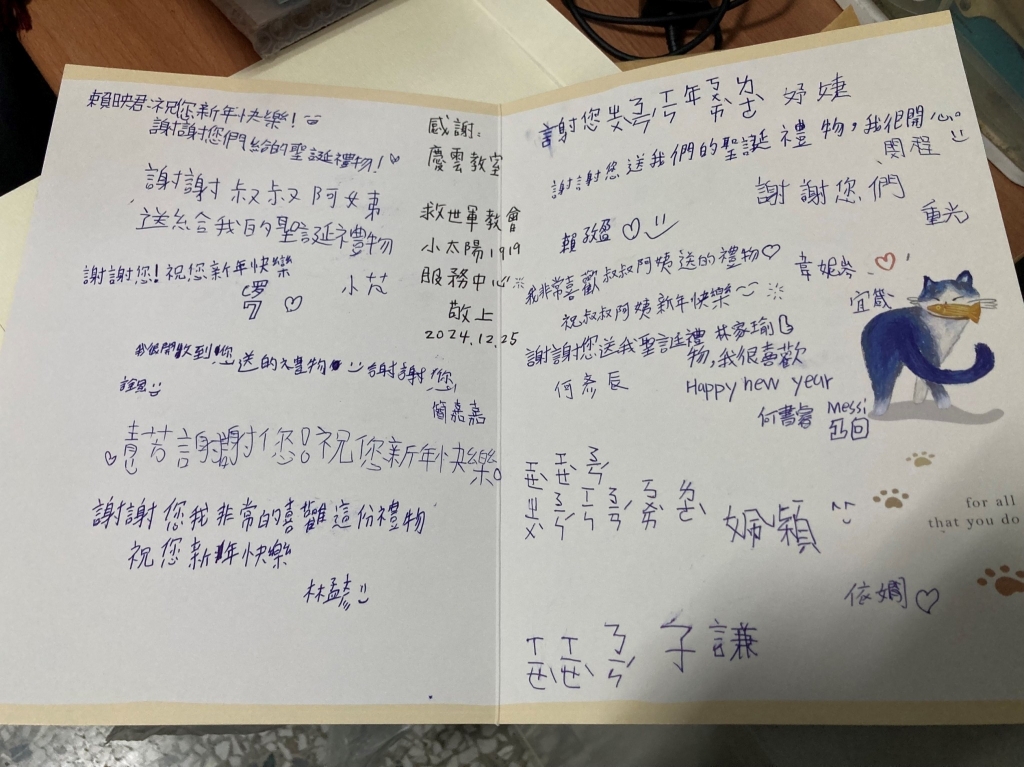 賴映君:祝您新年快樂!
謝謝您們給的聖誕禮物!
謝謝叔叔阿姨
送給我的聖誕禮物
謝謝您!祝您新年快樂
小芯
我很開心收到您送的禮物 謝謝您
簡嘉嘉
謝謝您!祝您新年快樂。
謝謝您我非常的喜歡這份禮物
祝您新年快樂
林孟彥
感謝:
慶雲教室
救世軍教會
小太陽1919
服務中心
敬上
2024.12.25
謝您ㄓㄨˋㄋㄧㄣˊㄒㄧㄣ年ㄎㄨㄞˋㄌㄜˋ 妤婕
謝謝您送我們的聖誕禮物,我很開心。
謝謝您們
重光
賴玫盈
我非常喜歡叔叔阿姨送的禮物
祝叔叔阿姨新年快樂
韋妮岑
宜箴
謝謝您送我聖誕禮物,我很喜歡
林家瑜
何彥辰
Happy new year
何書睿
Messi
ㄒㄧㄝˋㄒㄧㄝˋㄋㄧㄣˊ
依嫺
ㄒㄧㄝˋㄒㄧㄝˋㄋㄧㄣˊ 子謙
for all
that you do